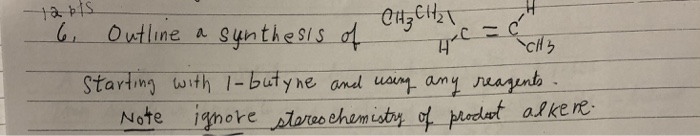 12 pts
6. Outline a synthesis of CH3CH2\ H'C = C'H \CH3
Starting with 1-butyne and using any reagents.
Note ignore stereochemistry of product alkene.